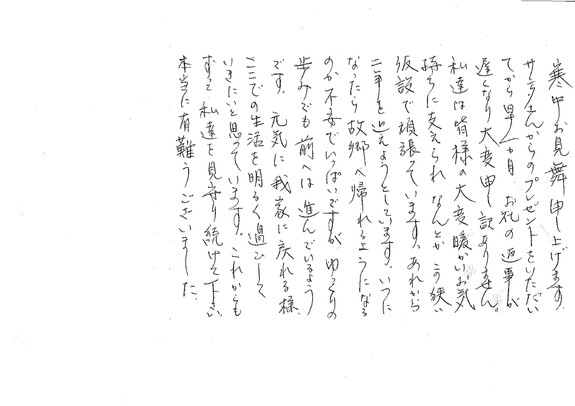 寒中お見舞申し上げます。
サンタさんからのプレゼントをいただい
てから早一ヵ月 お礼の返事が
遅くなり大変申し訳ありません。
私達は皆様の大変暖かいお気
持ちに支えられ なんとかこの狭い
仮設で頑張っています。あれから
二年を迎えようとしています。いつに
なったら故郷へ帰れるようになる
のか不安でいっぱいですが ゆっくりの
歩みでも前へは進んでいるよう
です。 元気に我家に戻れる様
ここでの生活を明るく過ごして
いきたいと思っています。これからも
ずっと私達を見守り続けて下さい
本当に有難うございました。